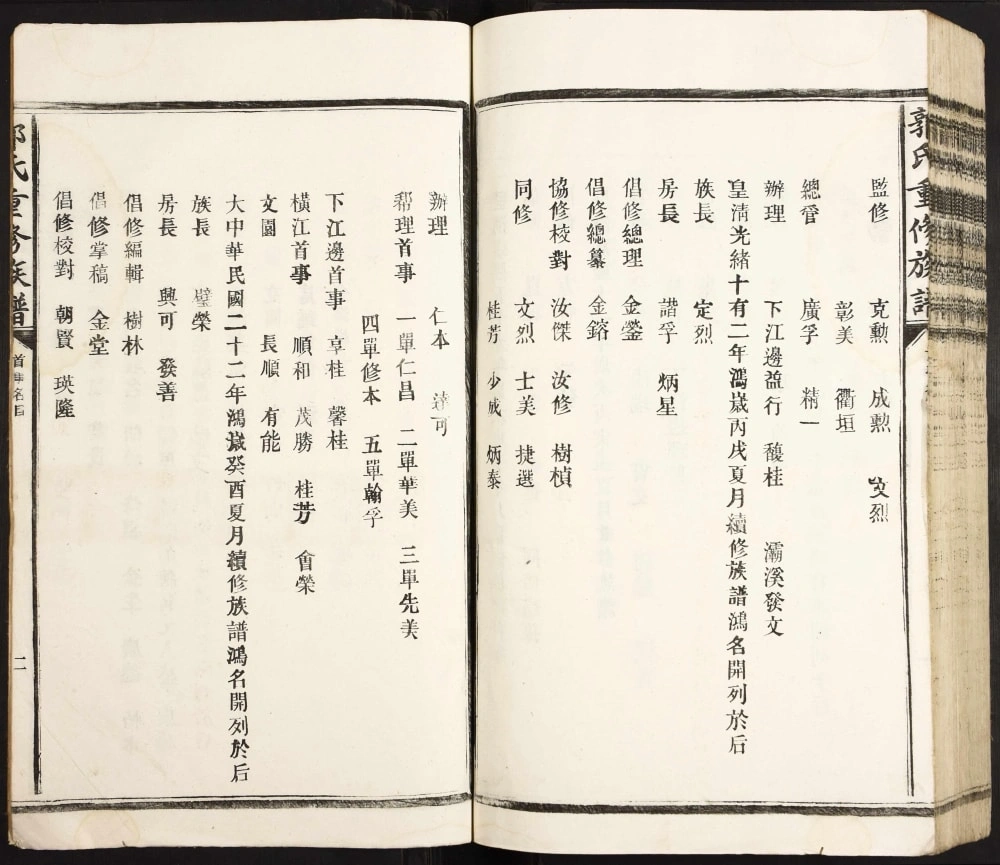 郭氏重修族譜
監修 克勲 成勲 文烈
彰美 衢垣
總管 廣孚 精一
辦理 下江邊益行 馥桂 灞溪發文
皇淸光緒十有二年鴻歲丙戌夏月續修族譜鴻名開列於后
族長 定烈
房長 諧孚 炳星
倡修總理 金鎣
倡修總纂 金鎔
協修校對 汝傑 汝修 樹楨
同修 文烈 士美 捷選
桂芳 少威 炳泰
辦理 仁本 達可
帮理首事 一單仁昌 二單華美 三單先美
四單修本 五單翰孚
下江邊首事 享桂 馨桂
橫江首事 順和 茂勝 桂芳 會榮
文園 長順 有能
大中華民國二十二年鴻歲癸酉夏月續修族譜鴻名開列於后
族長 璧榮
房長 興可 發善
倡修編輯 樹林
倡修掌稿 金堂
倡修校對 朝賢 瑛隆
郭氏重修族譜 首集名目 二